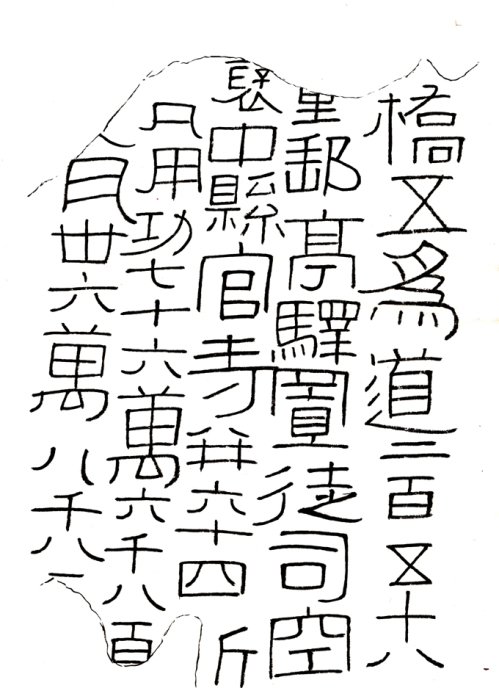 橋五爲道二百五十八
里郵亭驛置徒司空
褒中縣官寺并六十四所
凡用功七十六萬六千八百
瓦卅六萬八千八